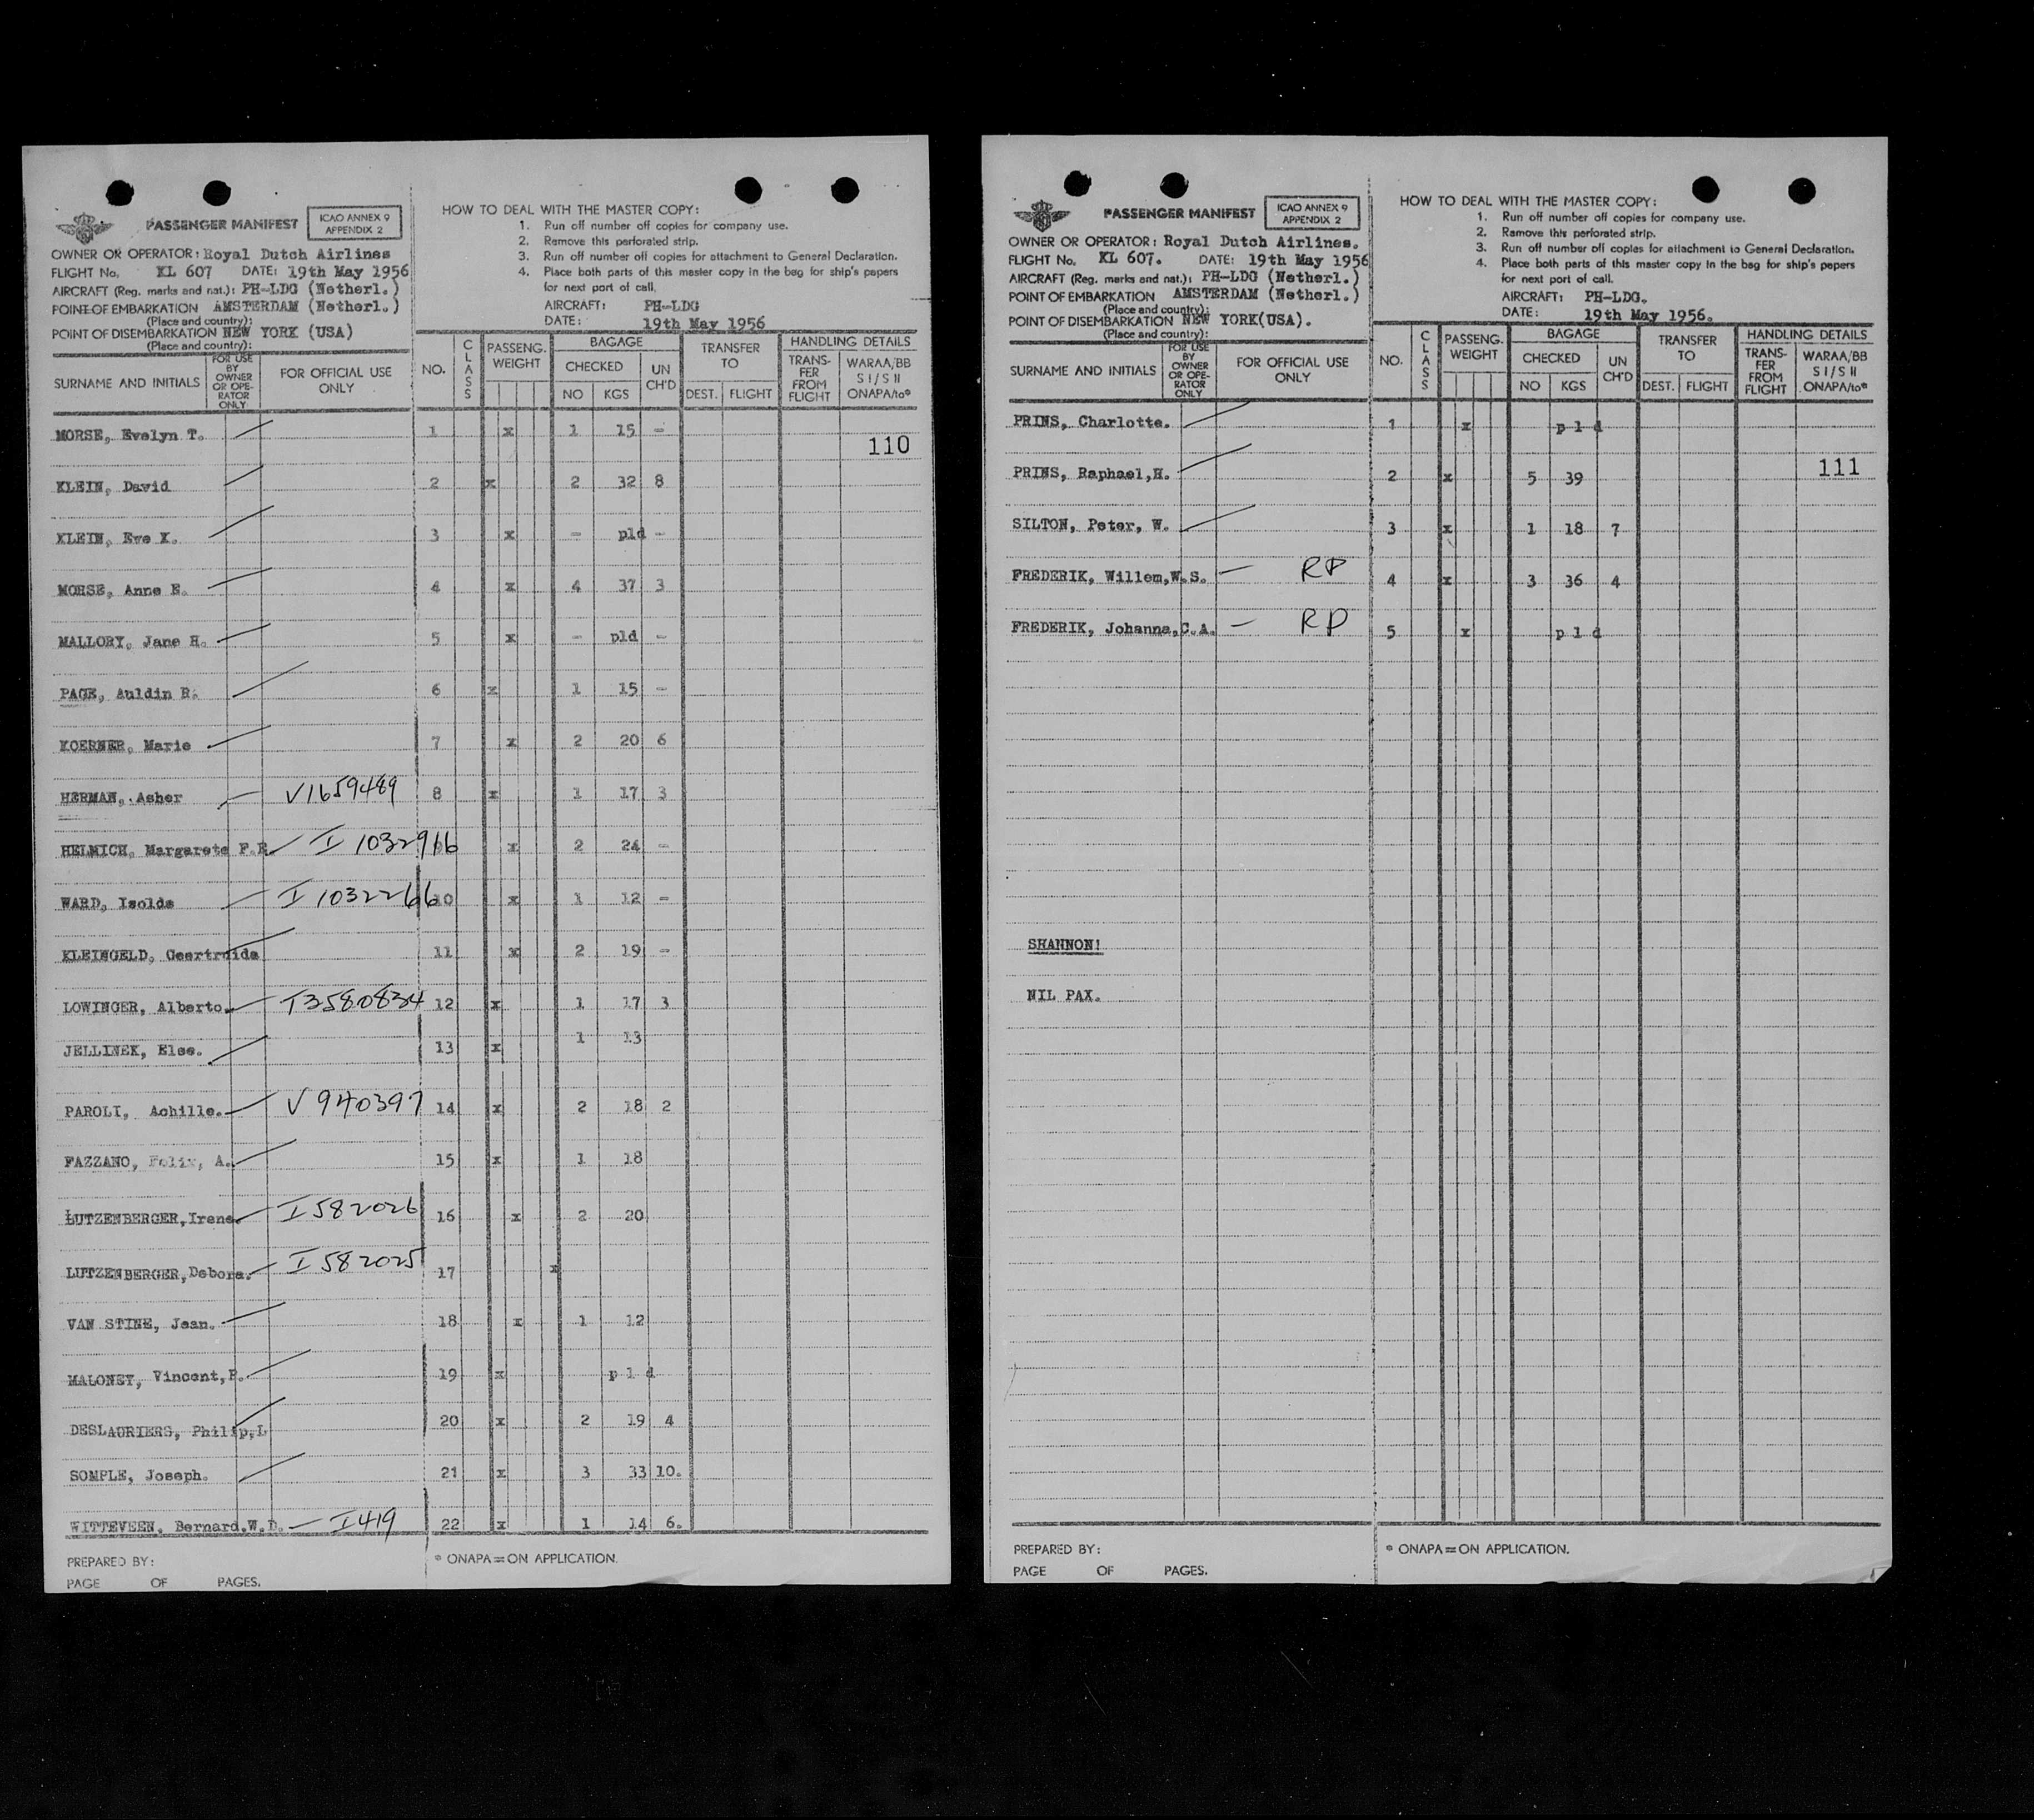 PASSENGER MANIFEST
ICAO ANNEX 9
APPENDIX 2
OWNER OR OPERATOR: Royal Dutch Airlines
FLIGHT No. KL 607 DATE: 19th May 1956
AIRCRAFT (Reg. marks and nat.): PH-LDG (Netherl.)
POINT OF EMBARKATION AMSTERDAM (Netherl.)
(Place and country):
POINT OF DISEMBARKATION NEW YORK (USA)
(Place and country):
HOW TO DEAL WITH THE MASTER COPY:
1. Run off number off copies for company use.
2. Remove this perforated strip.
3. Run off number off copies for attachment to General Declaration.
4. Place both parts of this master copy in the bag for ship's papers
for next port of call.
AIRCRAFT: PH-LDG
DATE: 19th May 1956
SURNAME AND INITIALS
FOR USE
BY
OWNER
OR OPE-
RATOR
ONLY
FOR OFFICIAL USE
ONLY
NO.
CLASS
PASSENG.
WEIGHT
BAGAGE
CHECKED
NO KGS
UN
CH'D
TRANSFER
TO
DEST. FLIGHT
HANDLING DETAILS
TRANS-
FER
FROM
FLIGHT
WARAA/BB
S I/S II
ONAPA/to*
MORSE, Evelyn T. 1 x 1 15 -
110
KLEIN, David 2 x 2 32 8
KLEIN, Eve K. 3 x - pld -
MORSE, Anne E. 4 x 4 37 3
MALLORY, Jane H. 5 x - pld -
PAGE, Auldin R. 6 x 1 15 -
KOERNER, Marie 7 x 2 20 6
HERMAN, Asher V1659489 8 x 1 17 3
HELMICH, Margarete F.R. I 1032916 x 2 24 -
WARD, Isolde I 1032266 10 x 1 12 -
KLEINGELD, Geertruida 11 x 2 19 -
LOWINGER, Alberto. T3580834 12 x 1 17 3
JELLINEK, Else. 13 x 1 13
PAROLI, Achille. V940397 14 x 2 18 2
FAZZANO, Felix, A. 15 x 1 18
LUTZENBERGER,Irene. I582026 16 x 2 20
LUTZENBERGER,Debora. I582025 17 x
VAN STINE, Jean. 18 x 1 12
MALONEY, Vincent,P. 19 x p l d
DESLAURIERS, Philip,L 20 x 2 19 4
SOMPLE, Joseph. 21 x 3 33 10.
WITTEVEEN, Bernard,W.D. I419 22 x 1 14 6.
PREPARED BY:
PAGE OF PAGES.
* ONAPA=ON APPLICATION.
PASSENGER MANIFEST
ICAO ANNEX 9
APPENDIX 2
OWNER OR OPERATOR: Royal Dutch Airlines.
FLIGHT No. KL 607. DATE: 19th May 1956
AIRCRAFT (Reg. marks and nat.): PH-LDG (Netherl.)
POINT OF EMBARKATION AMSTERDAM (Netherl.)
(Place and country):
POINT OF DISEMBARKATION NEW YORK(USA).
(Place and country):
HOW TO DEAL WITH THE MASTER COPY:
1. Run off number off copies for company use.
2. Remove this perforated strip.
3. Run off number off copies for attachment to General Declaration.
4. Place both parts of this master copy in the bag for ship's papers
for next port of call.
AIRCRAFT: PH-LDG.
DATE: 19th May 1956.
SURNAME AND INITIALS
FOR USE
BY
OWNER
OR OPE-
RATOR
ONLY
FOR OFFICIAL USE
ONLY
NO.
CLASS
PASSENG.
WEIGHT
BAGAGE
CHECKED
NO KGS
UN
CH'D
TRANSFER
TO
DEST. FLIGHT
HANDLING DETAILS
TRANS-
FER
FROM
FLIGHT
WARAA/BB
S I/S II
ONAPA/to*
PRINS, Charlotte. 1 x p l d
PRINS, Raphael,H. 2 x 5 39 111
SILTON, Peter, W. 3 x 1 18 7
FREDERIK, Willem,W.S. - RP 4 x 3 36 4
FREDERIK, Johanna,C.A. - RP 5 x p l d
SHANNON!
NIL PAX.
PREPARED BY:
PAGE OF PAGES.
* ONAPA=ON APPLICATION.